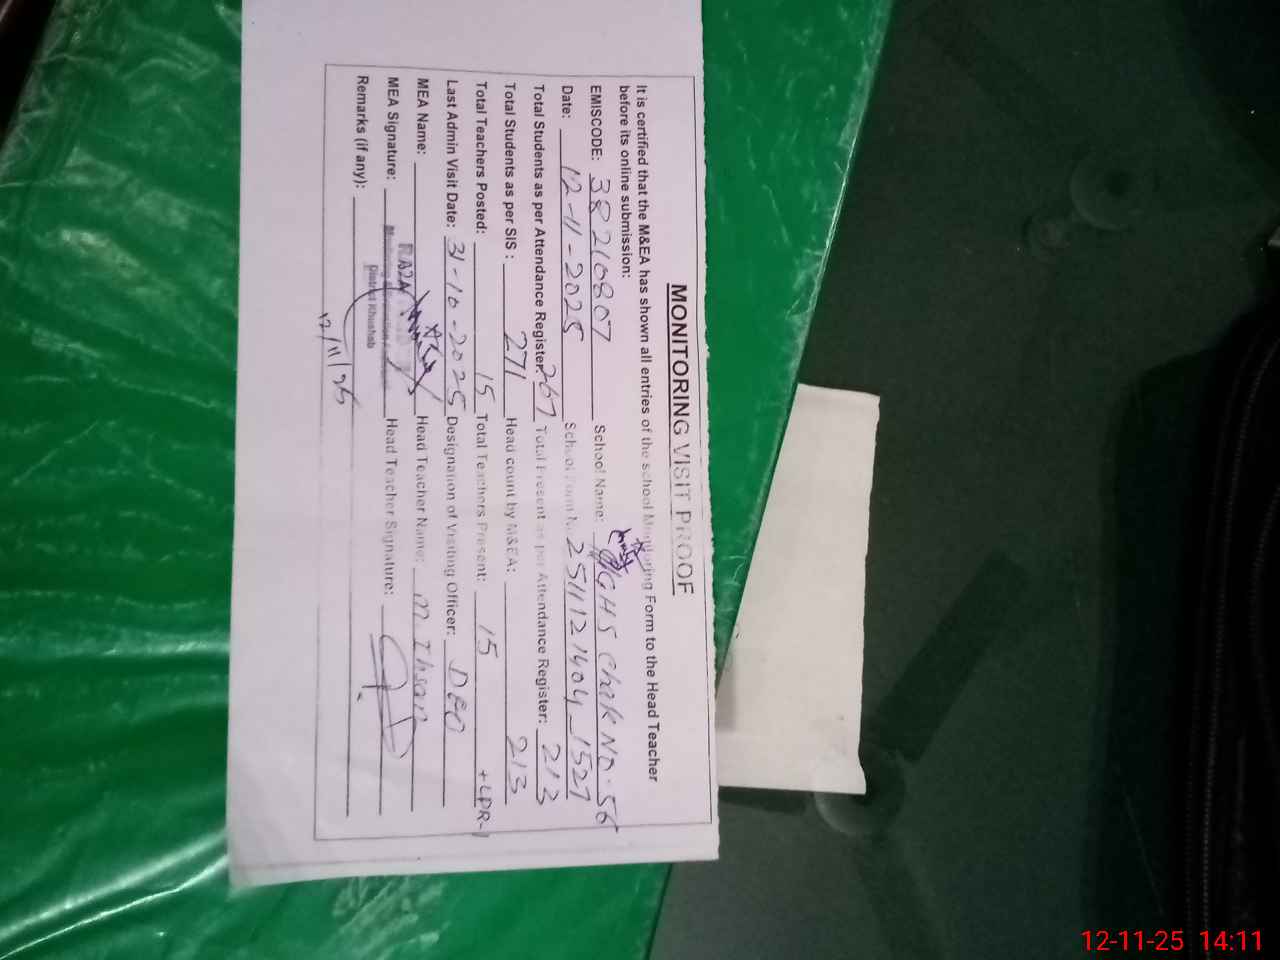 MONITORING VISIT PROOF
It is certified that the M&EA has shown all entries of the school Monitoring Form to the Head Teacher
before its online submission:
EMISCODE: 38210807 School Name: GHS Chak No. 56
Date: 12-11-2025 School Form N. 2511121404_1527
Total Students as per Attendance Register: 267 Total Present as per Attendance Register: 213
Total Students as per SIS : 271 Head count by M&EA: 213
Total Teachers Posted: 15 Total Teachers Present: 15 +LPR-1
Last Admin Visit Date: 31-10-2025 Designation of Visiting Officer: DEO
MEA Name: Head Teacher Name: M Ihsan
MEA Signature: Head Teacher Signature:
District Khushab
Remarks (if any):
12/11/25
12-11-25 14:11